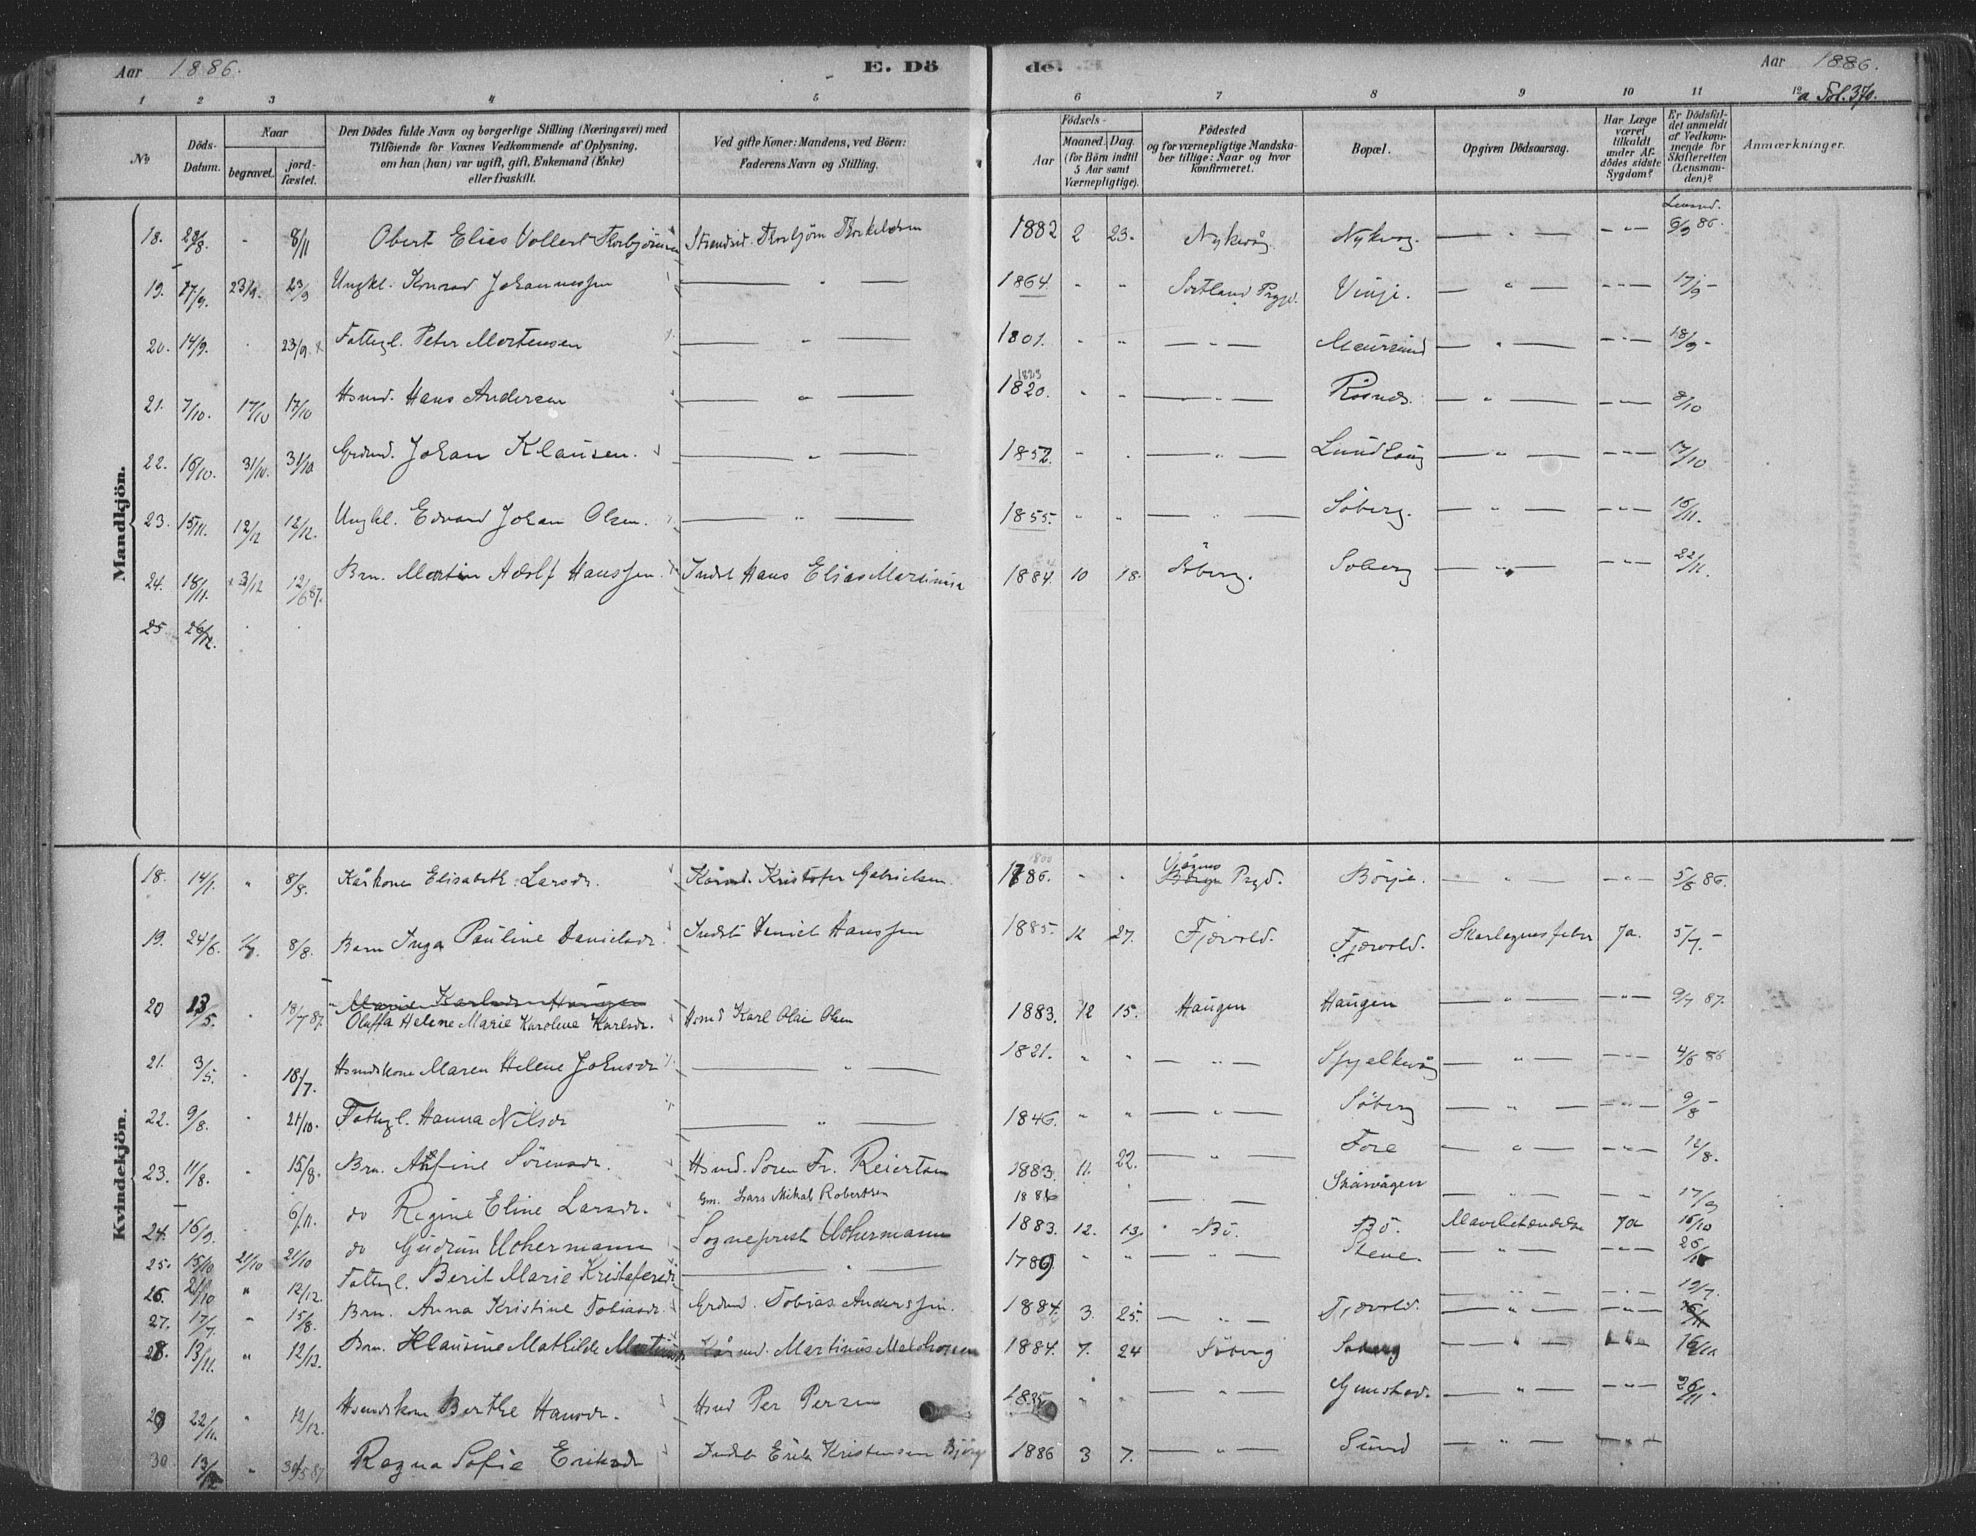 Aar 1886. E. Dö de. Aar 1886.
1 2 3 4 5 6 7 8 9 10 11 12
a Fol. 370.
No Döds-Datum. Naar begravet. jord-fæstet. Den Dödes fulde Navn og borgerlige Stilling (Næringsvei) med Tilföiende for Voxnes Vedkommende af Oplysning, om han (hun) var ugift, gift, Enkemand (Enke) eller fraskilt. Ved gifte Koner: Mandens, ved Börn: Faderens Navn og Stilling. Födsels- Aar Maaned. Dag. (for Börn indtil 5 Aar samt Værnepligtige). Födested og for værnepligtige Mandskaber tillige: Naar og hvor konfirmeret. Bopæl. Opgiven Dödsaarsag. Har Læge været tilkaldt under Afdödes sidste Sygdom? Er Dödsfaldet anmeldt af Vedkommende for Skifteretten (Lensmanden)? Anmærkninger.
Mandkjön.
18. 8/11 Obert Elies Vollert Thorbjörnsen Strandsid. Thorbjörn Thorkeldsen 1882 2 23. Nykvåg Nykvåg. — " — - " - Lensmd. 6/9 86.
19. 17/9. 23/9. 23/9 Ungkl. Konrad Johannessen — " — 1864 " " Sortland Prgjd. Vinje. — " — - " - 17/9 -
20. 14/9. 23/9. Fattigl. Peter Mortensen — " — 1801. " " - " - Maursund — " — - " - 18/9 -
21. 7/10. 17/10 17/10 Hsmd. Hans Andersen — " — 1820. - - — " — Rösnes. — " — - " - 8/10
22. 16/10. 31/10. 31/10 Grdmd. Johan Klausen. — " — 1852. " - — " — Lundvåg — " — - " - 17/10
23. 15/11. 12/12 12/12. Ungkl. Edvard Johan Olsen. — " — 1855. " " — " — Söberg. — " — - " - 16/11.
24. 18/11. 3/12 12/6 87. Brn. Martin Adolf Hanssen. Indst Hans Elias Martinius 1884. 10 18. Söberg. Söberg — " — - " - 22/11.
25 26/12.
Kvindekjön.
18. 14/1. " 8/8. Kårkone Elisabeth Larsdr. Kårmd. Kristofer Gabrielsen. 1786. " " Prgd. Börje. — " — - " - 5/8 86.
19. 24/6. 8/8. Barn Inga Pauline Danielsdr. Indst Daniel Hanssen 1885. 12 27. Fjærvold. Fjærvold. Skarlagensfeber Ja. 5/7. -
20 13/5. 18/7 87. Marie Karlsdr Haugen
Olaffa Helene Marie Karoline Karlsdr. Hsmd Karl Olai Olsen 1883. 12 15. Haugen Haugen — " — - " - 9/7 87.
21. 3/5. 18/7. Hsmdskone Maren Helene Johnsdr — " — 1821. " " — " — Spjelkvåg — " — - " - 4/6 86
22. 9/8. " 21/10. Fattigl. Hanna Nilsdr — " — 1846. " " — " — Söberg — " — - " - 9/8 -
23. 11/8. " 15/8. Brn. Sörensdr. Hsmd. Soren Fr. Reiertsen 1883. 11. 22. — " — Fore — " — - " - 12/8.
24. 16/9. 6/11. do Regine Eline Larsdr. Gm. Lars Mikal Robertsen 1886 — " — Skårvågen — " — - " - 17/9
25. 15/10 21/10 21/10 do Gudrun Uchermann Sogneprest Uchermann 1883. 12. 13/ Bö. Bö. Mavebetændelse Ja 16/10
26. 21/10 " 12/12. Fattigl. Berit Marie Kristofersdr — " — 1789 " " — " — Steve. — " — - " - 26/10
27. 17/7 " 15/8. Brn. Anna Kristine Tobiasdr Grdmd. Tobias Anderssen. 1884. 3. 25. — " — Fjærvold. — " — 19/7.
28. 13/11. " 12/12. Brn. Klausine Mathilde Martinusdr Kårmd. Martinus Melchorsen 1884. 7. 24 Söberg Söberg — " — - " - 16/11
29 22/11. " 12/12. Hsmdskone Berthe Hansdr. Hsmd Per Persen 1835. " " — " — Gimstad. — " — - " - 26/11 -
30 13/12 " 30/5 87 Ragna Sofie Eriksdr Indst Erik Kristensen Bjørg 1886 3 7. — " — Sund — " — - " -